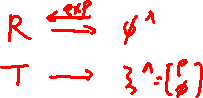 R exp ⇌ φ^
T → ξ^ = [ρ φ]